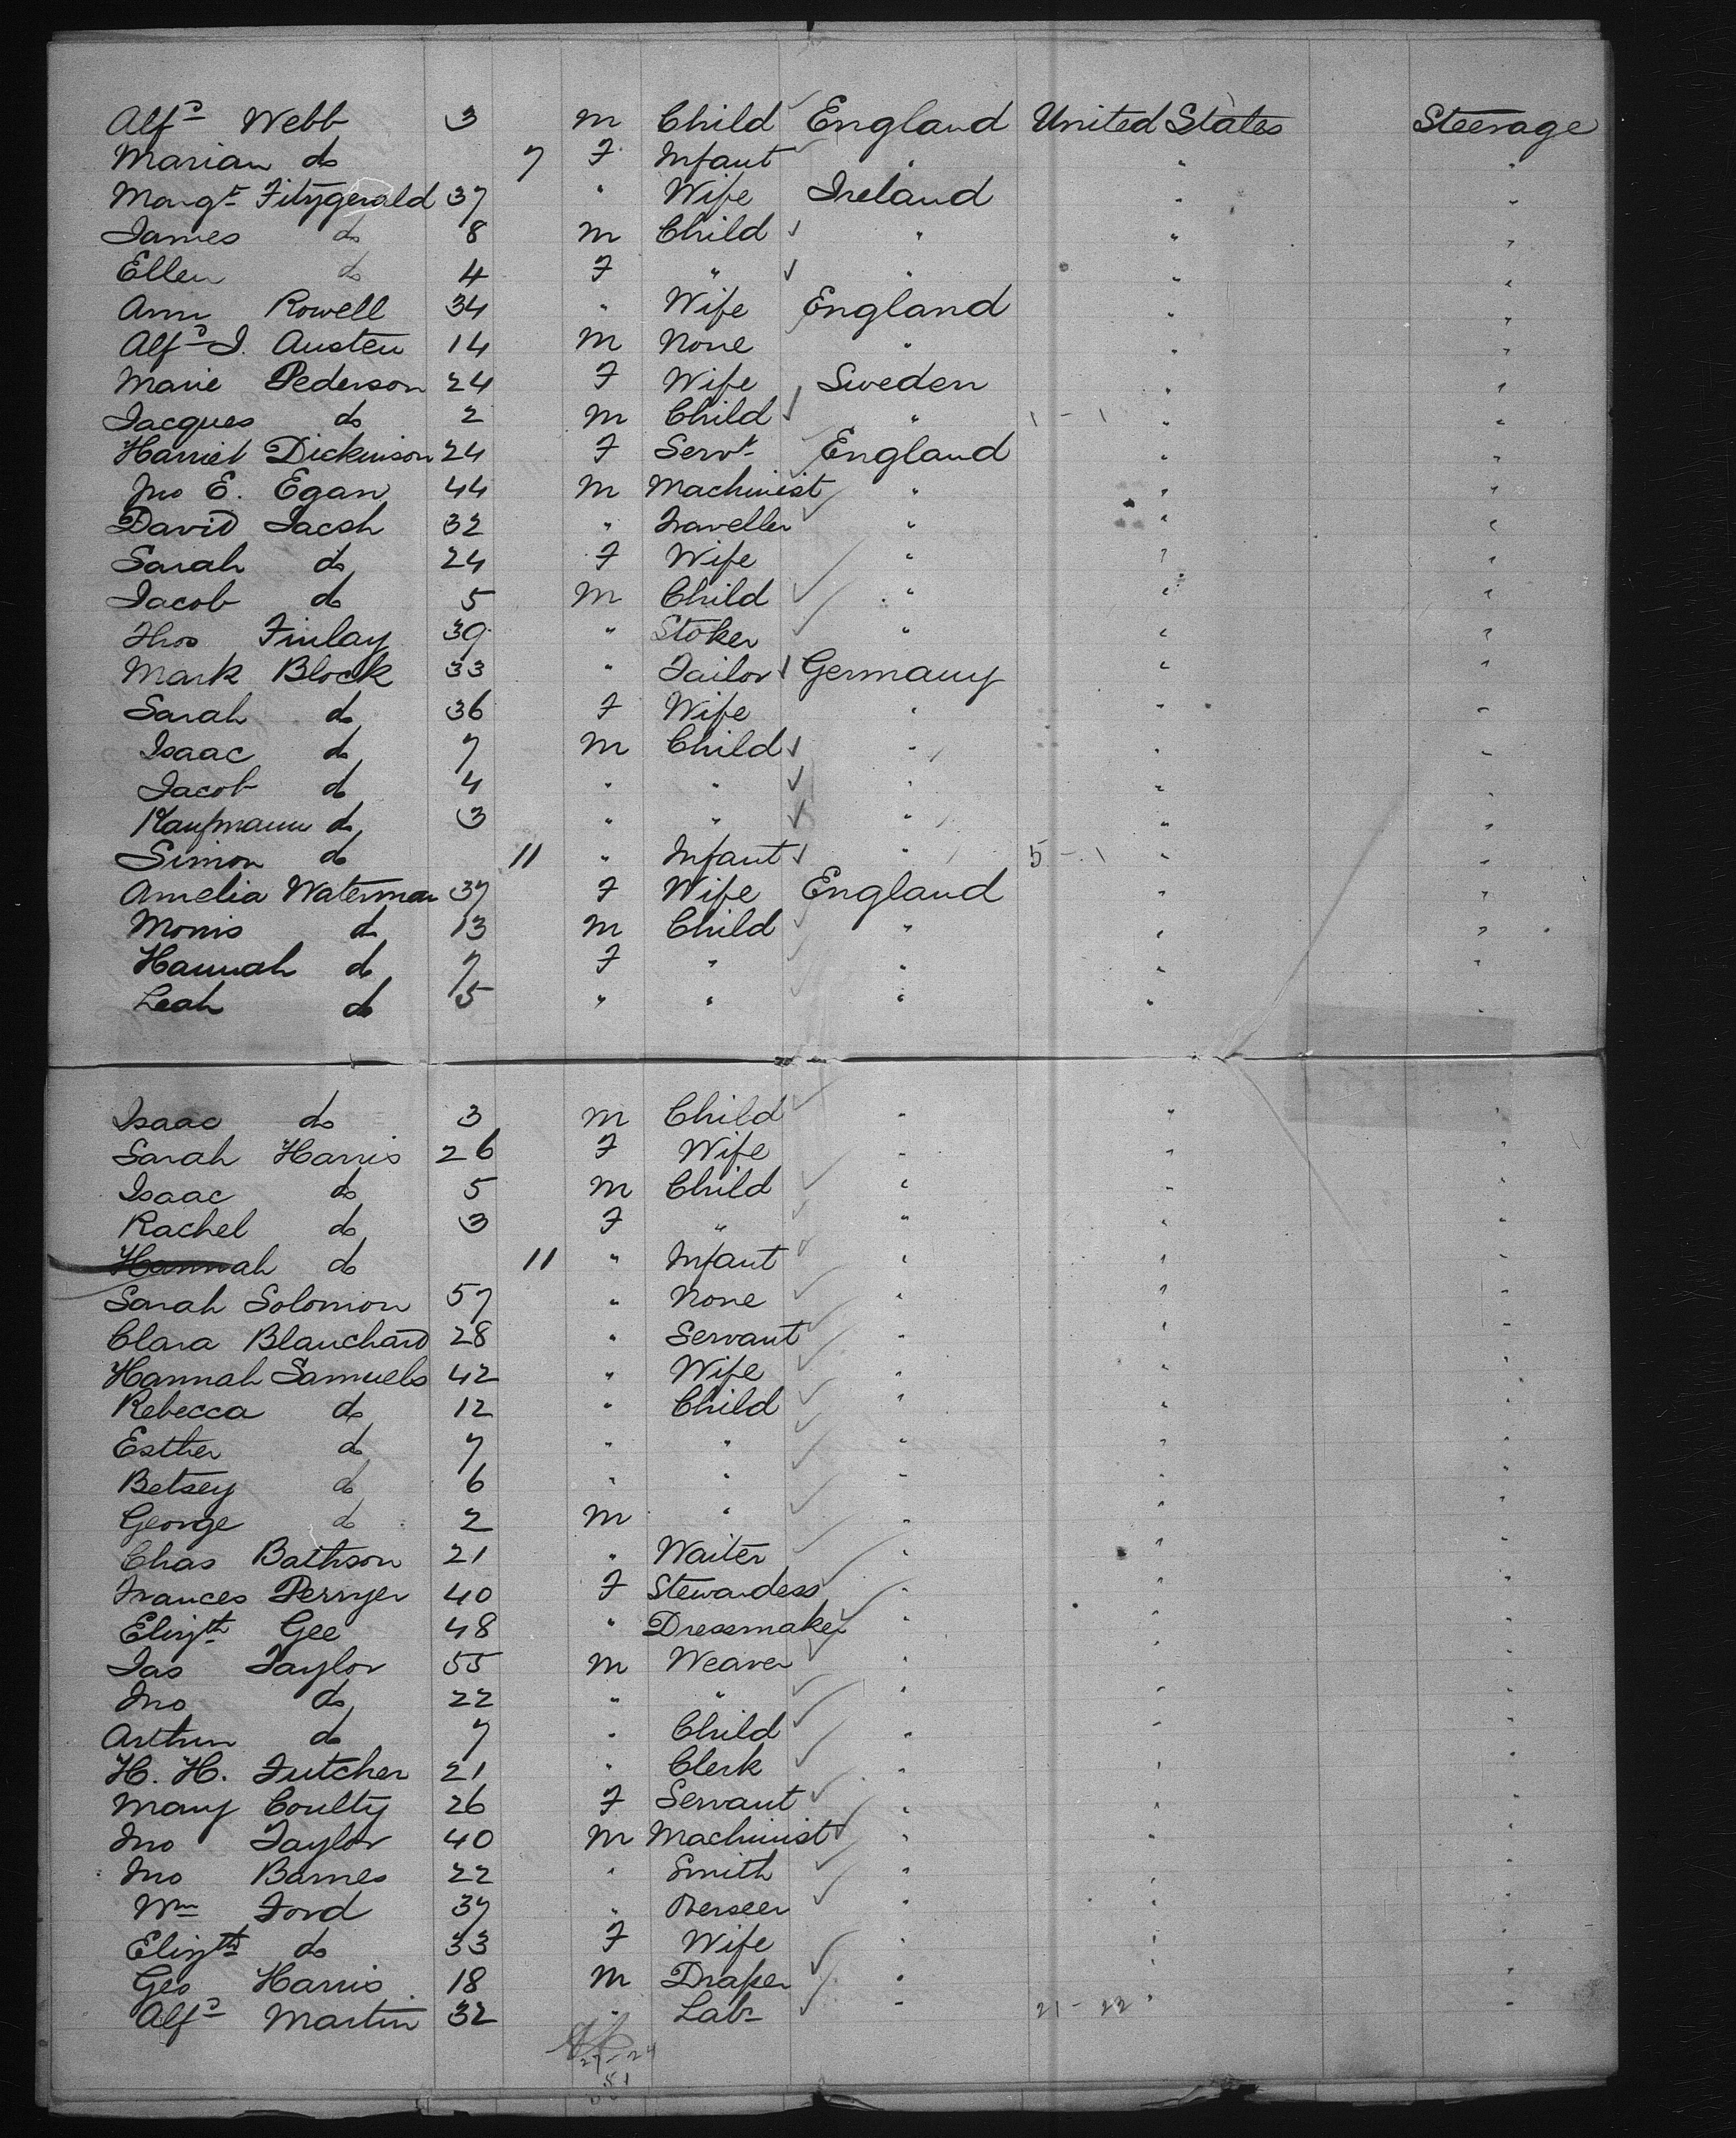 Alfd Webb 3 M Child England United States Steerage
Marian do 7 F Infant " " "
Margt Fitzgerald 37 " Wife Ireland " "
James do 8 M Child " " "
Ellen do 4 F " " " "
Ann Rowell 34 " Wife England " "
Alfd J. Austen 14 M None " " "
Marie Pederson 24 F Wife Sweden " "
Jacques do 2 M Child " 1 - 1 " "
Harriet Dickinson 24 F Servt England " "
Jno E. Egan 44 M Machinist " " "
David 32 " Traveller " " "
Sarah do 24 F Wife " " "
Jacob do 5 M Child " " "
Thos Finlay 39 " Stoker " " "
Mark Block 33 " Tailor Germany " "
Sarah do 36 F Wife " " "
Isaac do 7 M Child " " "
Jacob do 4 " " " " "
Kaufmann do 3 " " " " "
Simon do 11 " Infant " 5 - 1 " "
Amelia Waterman 37 F Wife England " "
Morris do 13 M Child " " "
Hannah do 7 F " " " "
Leah do 5 " " " " "
Isaac do 3 M Child " " "
Sarah Harris 26 F Wife " " "
Isaac do 5 M Child " " "
Rachel do 3 F " " " "
Hannah do 11 " Infant " " "
Sarah Solomon 57 " None " " "
Clara Blanchard 28 " Servant " " "
Hannah Samuels 42 " Wife " " "
Rebecca do 12 " Child " " "
Esther do 7 " " " " "
Betsey do 6 " " " " "
George do 2 M " " " "
Chas Bathson 21 " Waiter " " "
Frances Perryer 40 F Stewardess " " "
Elizth Gee 48 " Dressmaker " " "
Jas Taylor 55 M Weaver " " "
Jno do 22 " " " " "
Arthur do 7 " Child " " "
H. H. Futcher 21 " Clerk " " "
Mary Coulty 26 F Servant " " "
Jno Taylor 40 M Machinist " " "
Jno Barnes 22 " Smith " " "
Wm Ford 37 " Overseer " " "
Elizth do 33 F Wife " " "
Geo Harris 18 M Draper " " "
Alfd Martin 32 " Labr " 21 - 22 " "
27 - 24
51